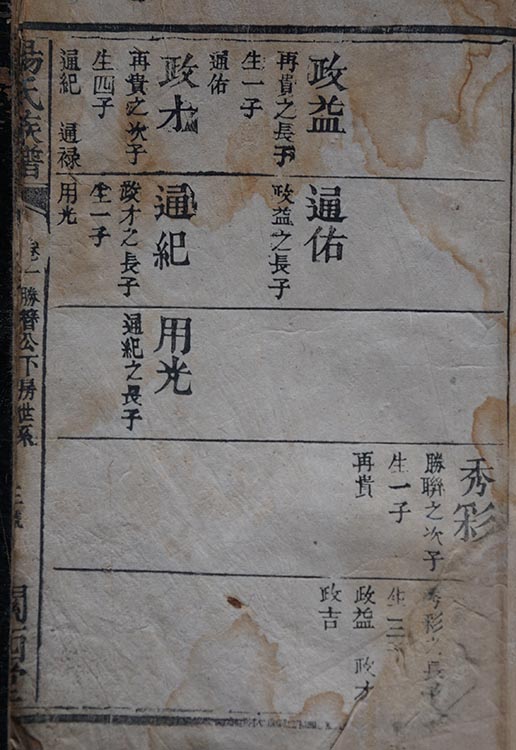 政益
再貴之長子
生一子
通佑
政才
再貴之次子
生四子
通紀 通禄
用光
通佑
政益之長子
通紀
政才之長子
生一子
用光
通紀之長子
秀彩
勝聯之次子
生一子
再貴
秀彩之長子
生三子
政益 政才
政吉
楊氏族譜
卷一 勝簪公下房世系